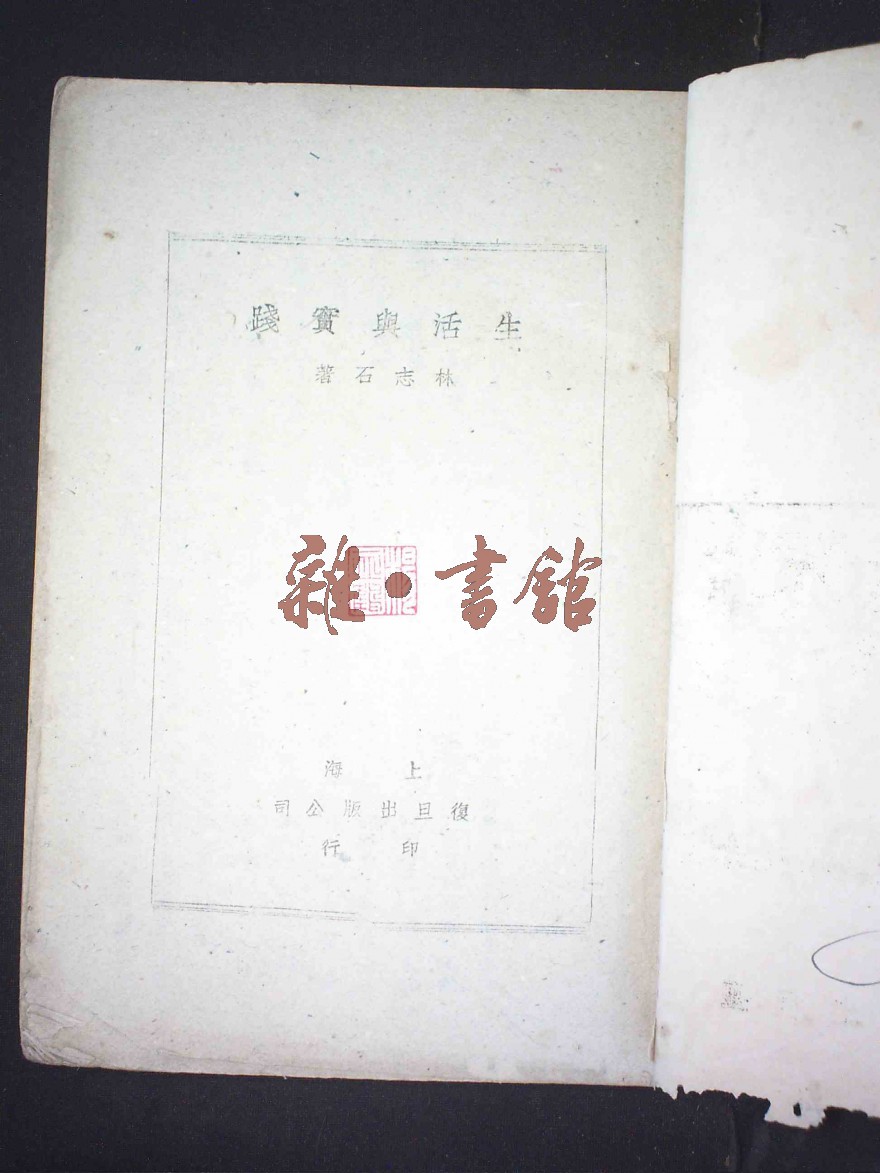 生活與實踐
林志石著
雜·書館
上海
復旦出版公司
印行